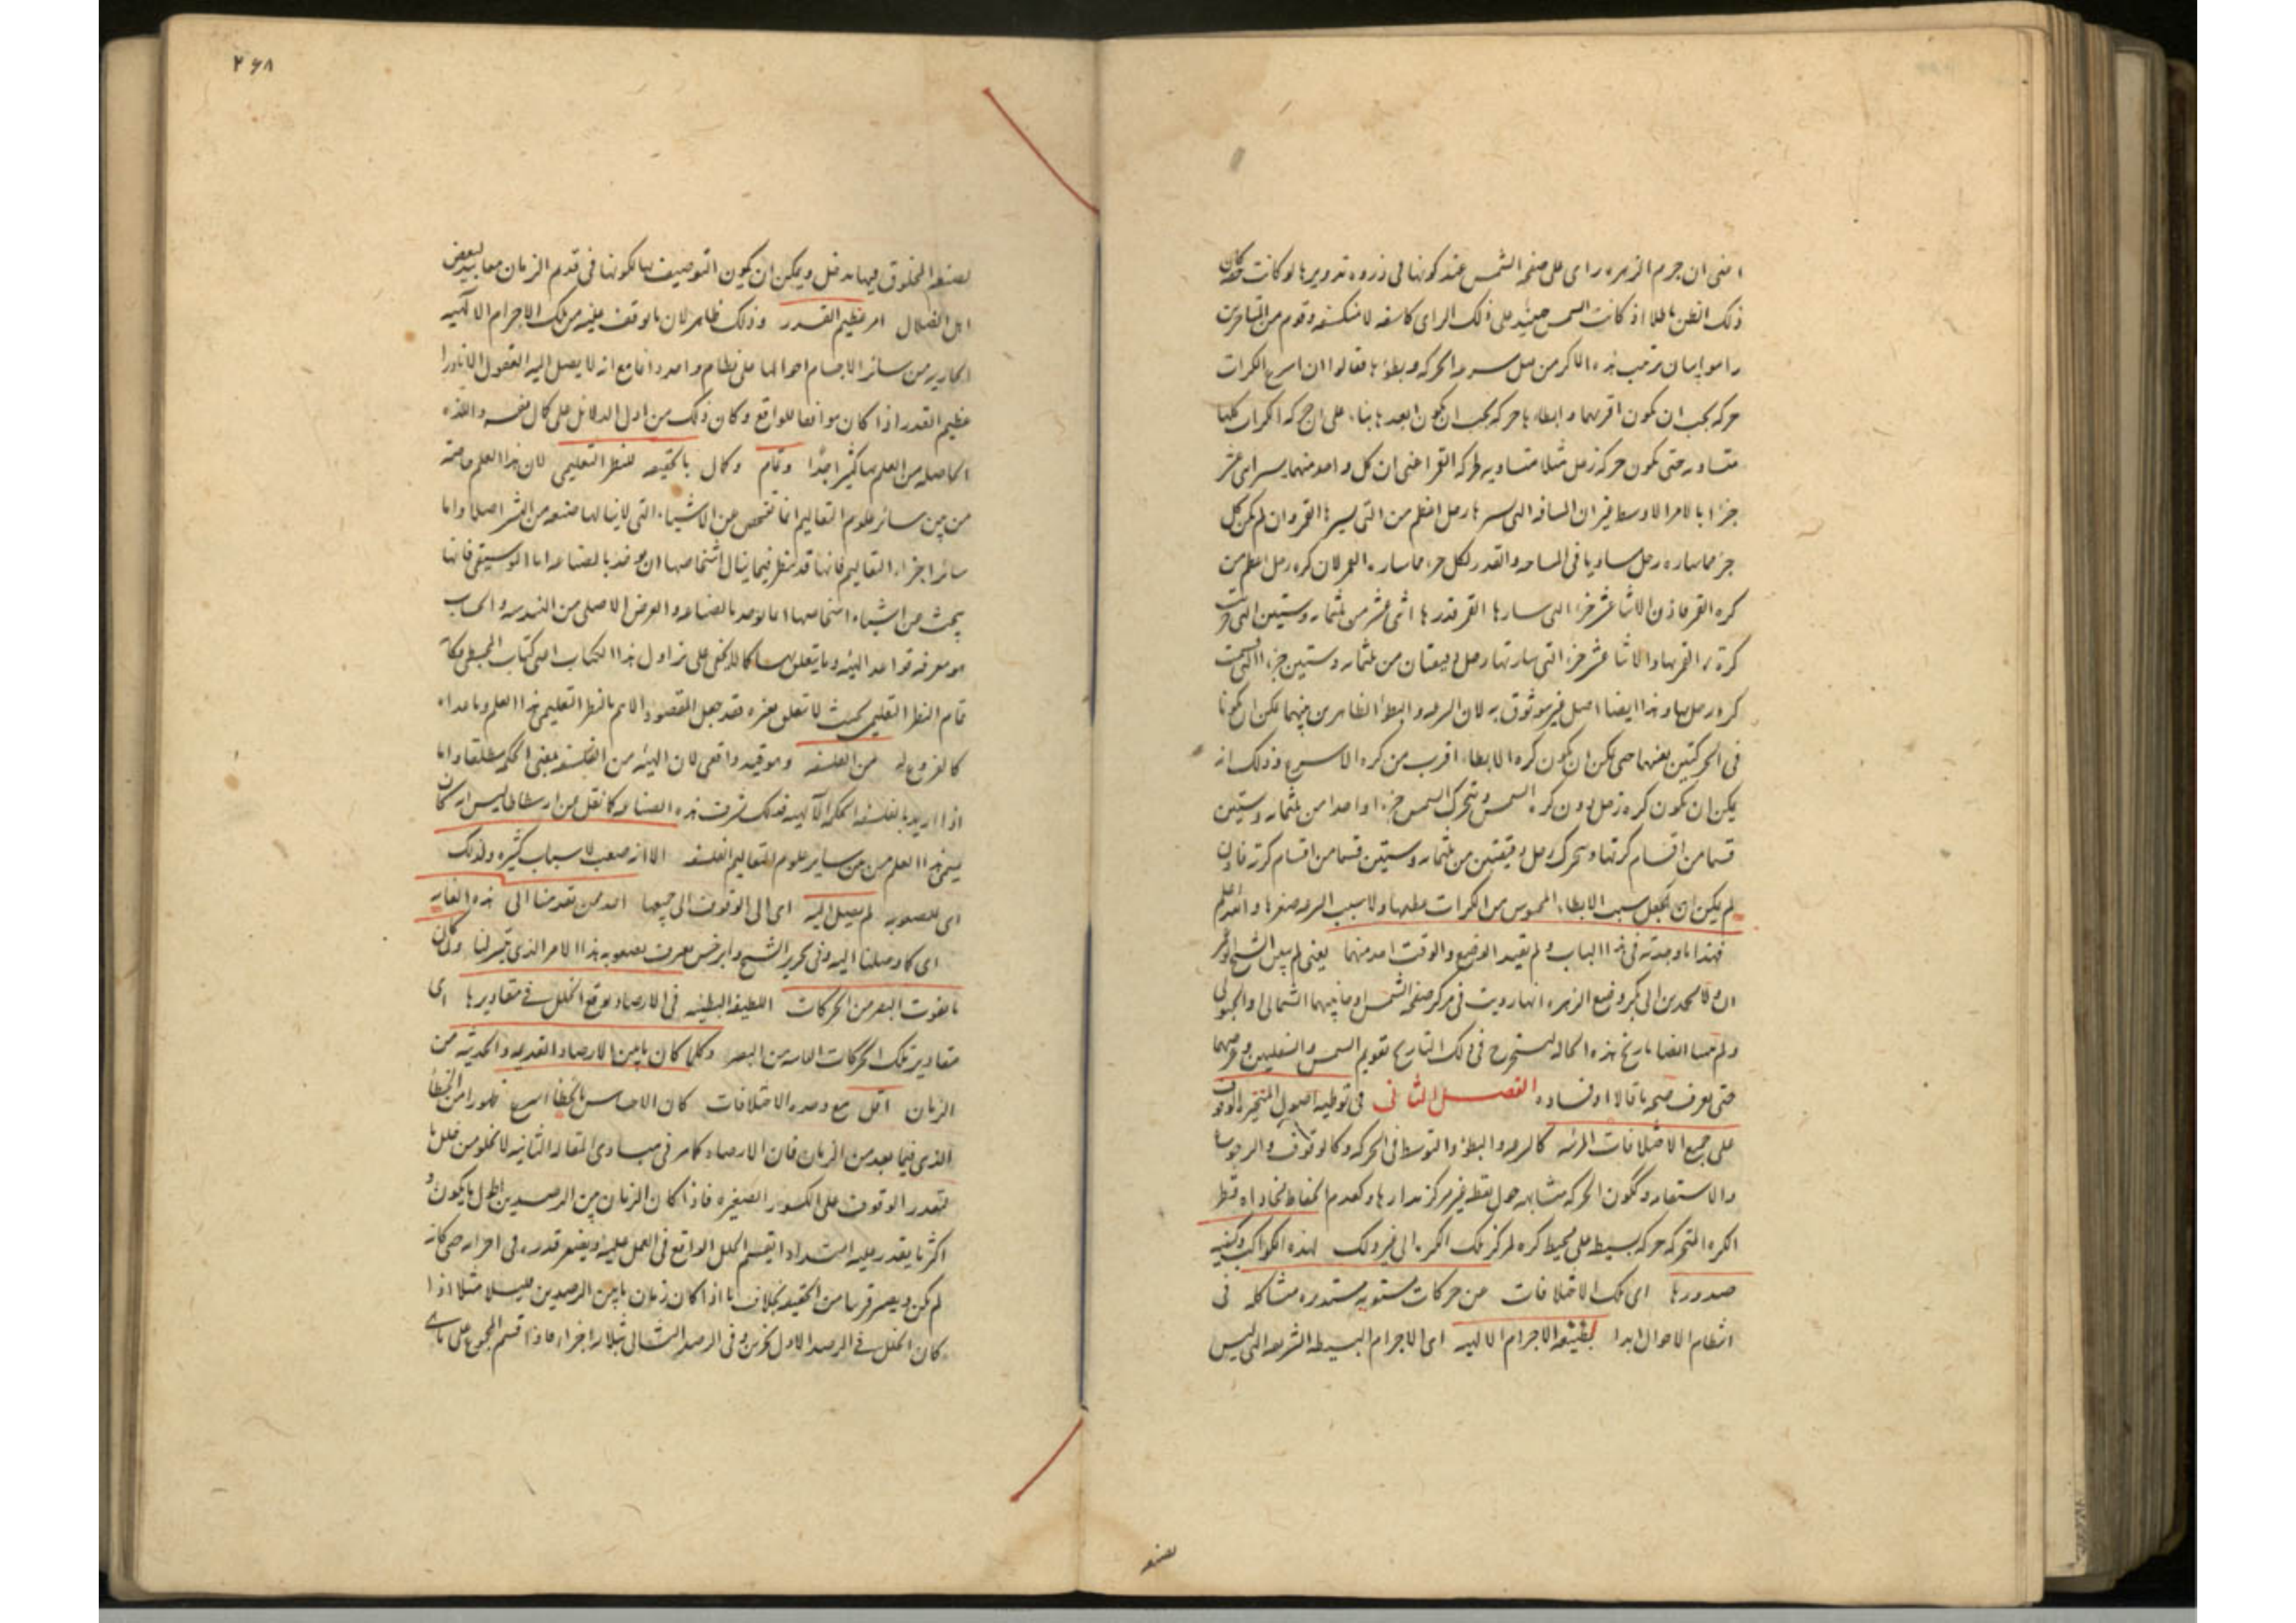 اعنى ان جرم الزهره راى على صفحه الشمس عند كونها فى ذروه تدويرها لو كانت حقه كان
ذلك الظن باطلا اذ كانت الشمس حينئذ على ذلك الراى كاسفه لا منكسفه وقوم من المتاخرين
راموا بيان ترتيب هذه الاكر من قبل سرعه الحركه وبطؤها فقالوا ان اسرع الكرات
حركه يجب ان يكون اقربهما وابطاها حركه يجب ان يكون ابعدها بناء على ان حركه الكرات كلها
متساويه حتى يكون حركه زحل مثلا متساويه لحركه القمر اعنى ان كل واحد منهما يسير اثنى عشر
جزءا بالامر الاوسط غير ان المسافه التى سيرها زحل اعظم من التى يسيرها القمر وان لم يكن كل
جزء مما ساره زحل مساويا فى المساحه والقدر لكل جزء مما ساره القمر لان كره زحل اعظم من
كره القمر فاذن الاثنا عشر جزءا التى سارها القمر قدرها اثنى عشر من ثلثمائه وستين التى قسمت
كره القمر بها والاثنا عشر جزءا التى سارتها زحل دقيقتان من ثلثمائه وستين جزءا التى قسمت
كره زحل بها وهذا ايضا اصل غير موثوق به لان السرعه والبطؤ الظاهرين منهما يمكن ان يكونا
فى الحركتين بعينهما حتى يمكن ان يكون كره الابطاء اقرب من كره الاسرع وذلك انه
يمكن ان يكون كره زحل دون كره الشمس ويتحرك الشمس جزءا واحدا من ثلثمائه وستين
قسما من اقسام كرتها ويتحرك زحل دقيقتين من ثلثمائه وستين قسما من اقسام كرته فاذن
لم يكن ان يجعل سبب الابطاء المحسوس من الكرات عظمها ولا سبب السرعه صغرها والله اعلم
فهذا ما وجدته فى هذا الباب ولم يقيد الوضع والوقت احد منهما يعنى لم يبين الشيخ ابو عمر
ان ولا محمد بن ابى بكر وضع الزهره انها رويت فى مركز صفحه الشمس او جانبيهما الشمالى او الجنوبى
ولم يبينا ايضا تاريخ هذه الحاله ليستخرج فى ذلك التاريخ تقويم الشمس والسفليين وعرضهما
حتى يعرف صحه ما قالا او فساده الفصل الثانى فى توطيه اصول المتحيره الوقوف
على جميع الاختلافات المرئيه كالسرعه والبطؤ والتوسط فى الحركه وكالوقوف والرجوع
والاستقامه وككون الحركه متشابهه حول نقطه غير مركز مدارها وكعدم انحفاظ محاذاه قطر
الكره المتحركه حركه بسيطه على محيط كره لمركز تلك الكره الى غير ذلك لهذه الكواكب وكيفيه
صدورها اى تلك الاختلافات من حركات مستويه مستديره متشاكله فى
انتظام الاحوال ابدا لطبيعه الاجرام الالهيه اى الاجرام البسيطه الشريفه التى ليس
لصنعه
٢٦٨
لصنعه المخلوق فيها مدخل ويمكن ان يكون التوصيف بها لكونها فى قدم الزمان معابيد لبعض
اهل الضلال امر عظيم القدر وذلك ظاهر لان ما يوقف عليه من تلك الاجرام الالهيه
الجاريه من سائر الاجسام احوالها على نظام واحد دائما مع انه لا يصل اليه العقول الا نادرا
عظيم القدر اذا كان موافقا للواقع وكان ذلك من اول الدلائل على كمال نفسه واللذه
الحاصله من العلم بها كثيرا جدا وتمام وكمال بالحقيقه للنظر التعليمى لان هذا العلم خاصه
من بين سائر علوم التعاليم انما تفحص عن الاشياء التى لا ينالها صنعه من البشر اصلا واما
سائر اجزاء التعاليم فانها قد تنظر فيما ينال اشخاصها ان يوخذ بالصناعه اما الموسيقى فانها
يبحث عن اشياء اشخاصها انما يوجد بالصناعه والغرض الاصلى من الهندسه والحساب
هو معرفه قواعد الهيئه وما يتعلق بها كما لا يخفى على من زاول هذا الكتاب اعنى كتاب المجسطى فكانه
تمام النظر التعليمى بحيث لا يتعلق بغيره فقد جعل المقصود الاهم بالنظر التعليمى هذا العلم وما عداه
كالفروع له من الفلسفه وهو قيد واقعى لان الهيئه من الفلسفه بمعنى الحكمه مطلقا واما
اذا اريد بالفلسفه الحكمه الالهيه فذلك لشرف هذه الصناعه كما نقل عن ارسطاطاليس انه كان
يسمى هذا العلم من بين ساير علوم التعاليم الفلسفه الا انه صعب لاسباب كثيره ولذلك
اى للصعوبه لم يصل اليه اى الى الوقوف الى جميعها احد ممن تقدمنا الى هذه الغايه
اى كما وصلنا اليه وفى تحرير الشيخ وابرخس معترف بصعوبه هذا الامر الذى تيسر لنا وكان
ما يفوت البصر من الحركات اللطيفه البطيئه فى الارصاد يوقع الخلل فى مقاديرها اى
مقادير تلك الحركات الفائته من البصر وكلما كان ما بين الارصاد القديمه والحديثه من
الزمان اقل مع وحده الاختلافات كان الاحساس بالخطأ اسرع ظهورا من الخطأ
الذى فيما بعد من الزمان فان الارصاد كما مر فى مبادى المقاله الثانيه لا يخلو من خلل ما
لتعذر الوقوف على الكسور الصغيره فاذا كان الزمان بين الرصدين اطول ما يكون و
اكثر ما يقدر عليه امتدادا ينقسم الخلل الواقع فى العمل عليه ويصغر قدره فى اجزائه حتى كانه
لم يكن ويصير قريبا من الحقيقه بخلاف ما اذا كان زمان ما بين الرصدين قليلا مثلا اذا
كان الخلل فى الرصد الاول بجزئين وفى الرصد الثانى بثلاثه اجزاء فاذا قسم المجموع على مايه